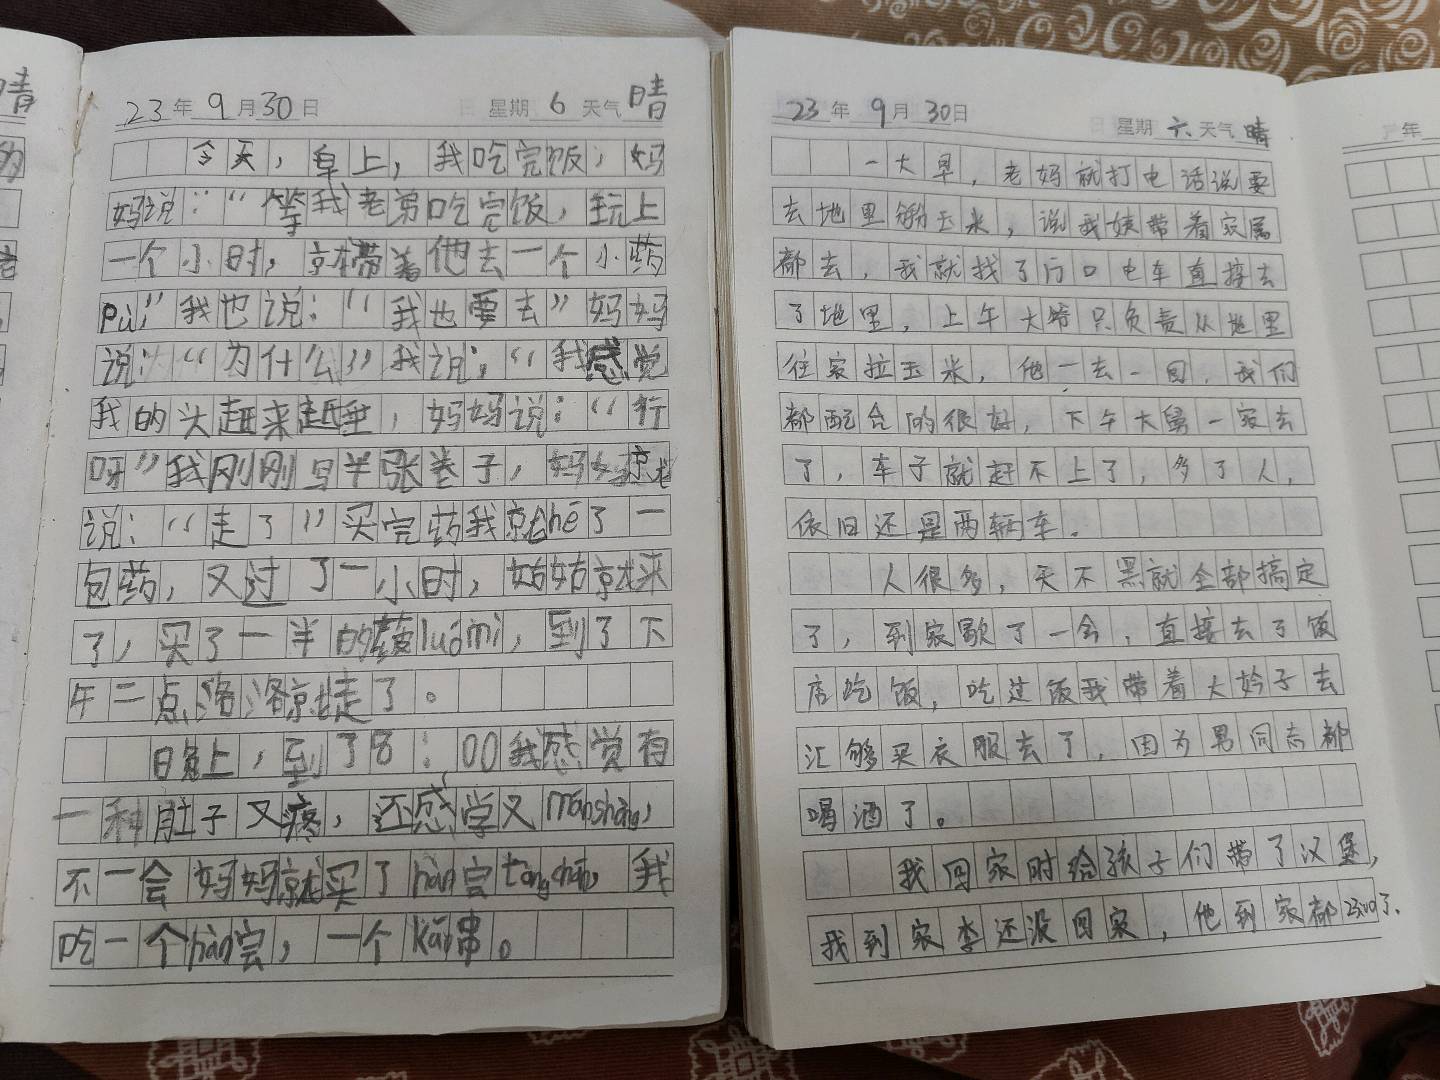 晴
23年9月30日 星期6天气晴
今天，早上，我吃完饭，妈
妈说：“等我老弟吃完饭，玩上
一个小时，就带着他去一个小药
pù”我也说：“我也要去”妈妈
说：“为什么”我说：“我感觉
我的头越来越，妈妈说：“行
呀”我刚刚写半张卷子，妈妈就
说：“走了”买完药我就hē了一
包药，又过了一小时，姑姑就来
了，买了一半的luómǐ，到了下
午二点洛洛就走了。
晚上，到了8：00我感觉有
一种肚子又疼，还感学又
不一会妈妈就买了hàn宝，我
吃一个hàn宝，一个kǎo串。
23年9月30日 星期六天气晴
一大早，老妈就打电话说要
去地里掰玉米，说我姨带着家属
都去，我就找了门口电车直接去
了地里，上午大哥只负责从地里
往家拉玉米，他一去一回，我们
都配合的很好，下午大舅一家去
了，车子就赶不上了，多了人，
依旧还是两辆车。
人很多，天不黑就全部搞定
了，到家歇了一会，直接去了饭
店吃饭，吃过饭我带着大妗子去
汇够买衣服去了，因为男同志都
喝酒了。
我回家时给孩子们带了汉堡，
我到家李还没回家，他到家都23:00了.
年